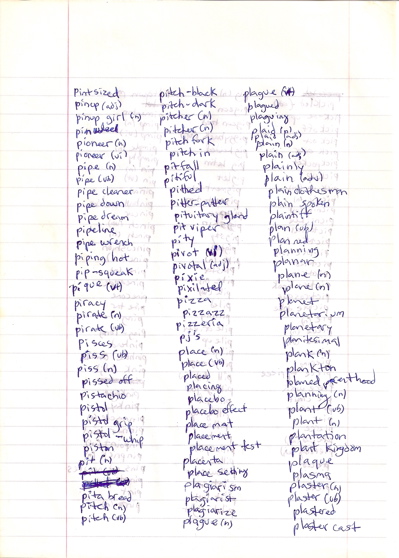 pintsized
pinup (adj)
pinup girl (n)
pinwheel
pioneer (n)
pioneer (vi)
pipe (n)
pipe (vb)
pipe cleaner
pipe down
pipe dream
pipeline
pipe wrench
piping hot
pip-squeak
pique (vt)
piracy
pirate (n)
pirate (vb)
Pisces
piss (vb)
piss (n)
pissed off
pistachio
pistol
pistol grip
pistol-whip
piston
pit (n)
pita bread
pitch (n)
pitch (vb)
pitch-black
pitch-dark
pitcher (n)
pitcher (n)
pitch fork
pitch in
pitfall
pitiful
pithed
pitter-patter
pituitary gland
pit viper
pity
pivot
pivotal (adj)
pixie
pixilated
pizza
pizzazz
pizzeria
pj's
place (n)
place (vb)
placed
placing
placebo
placebo effect
place mat
placement
placement test
placenta
place setting
plagiarism
plagiarist
plagiarize
plague (n)
plague (vt)
plagued
plaguing
plaid (n)
plaid (adj)
plain (n)
plain (adj)
plainly
plain (adv)
plainclothesman
plain spoken
plaintiff
plan (vb)
planned
planning
planar
plane (n)
plane (n)
planet
planetarium
planetary
planitesimal
plank (n)
plankton
planned parenthood
planning (n)
plant (vb)
plant (n)
plantation
plant kingdom
plaque
plasma
plaster (n)
plaster (vb)
plastered
plaster cast